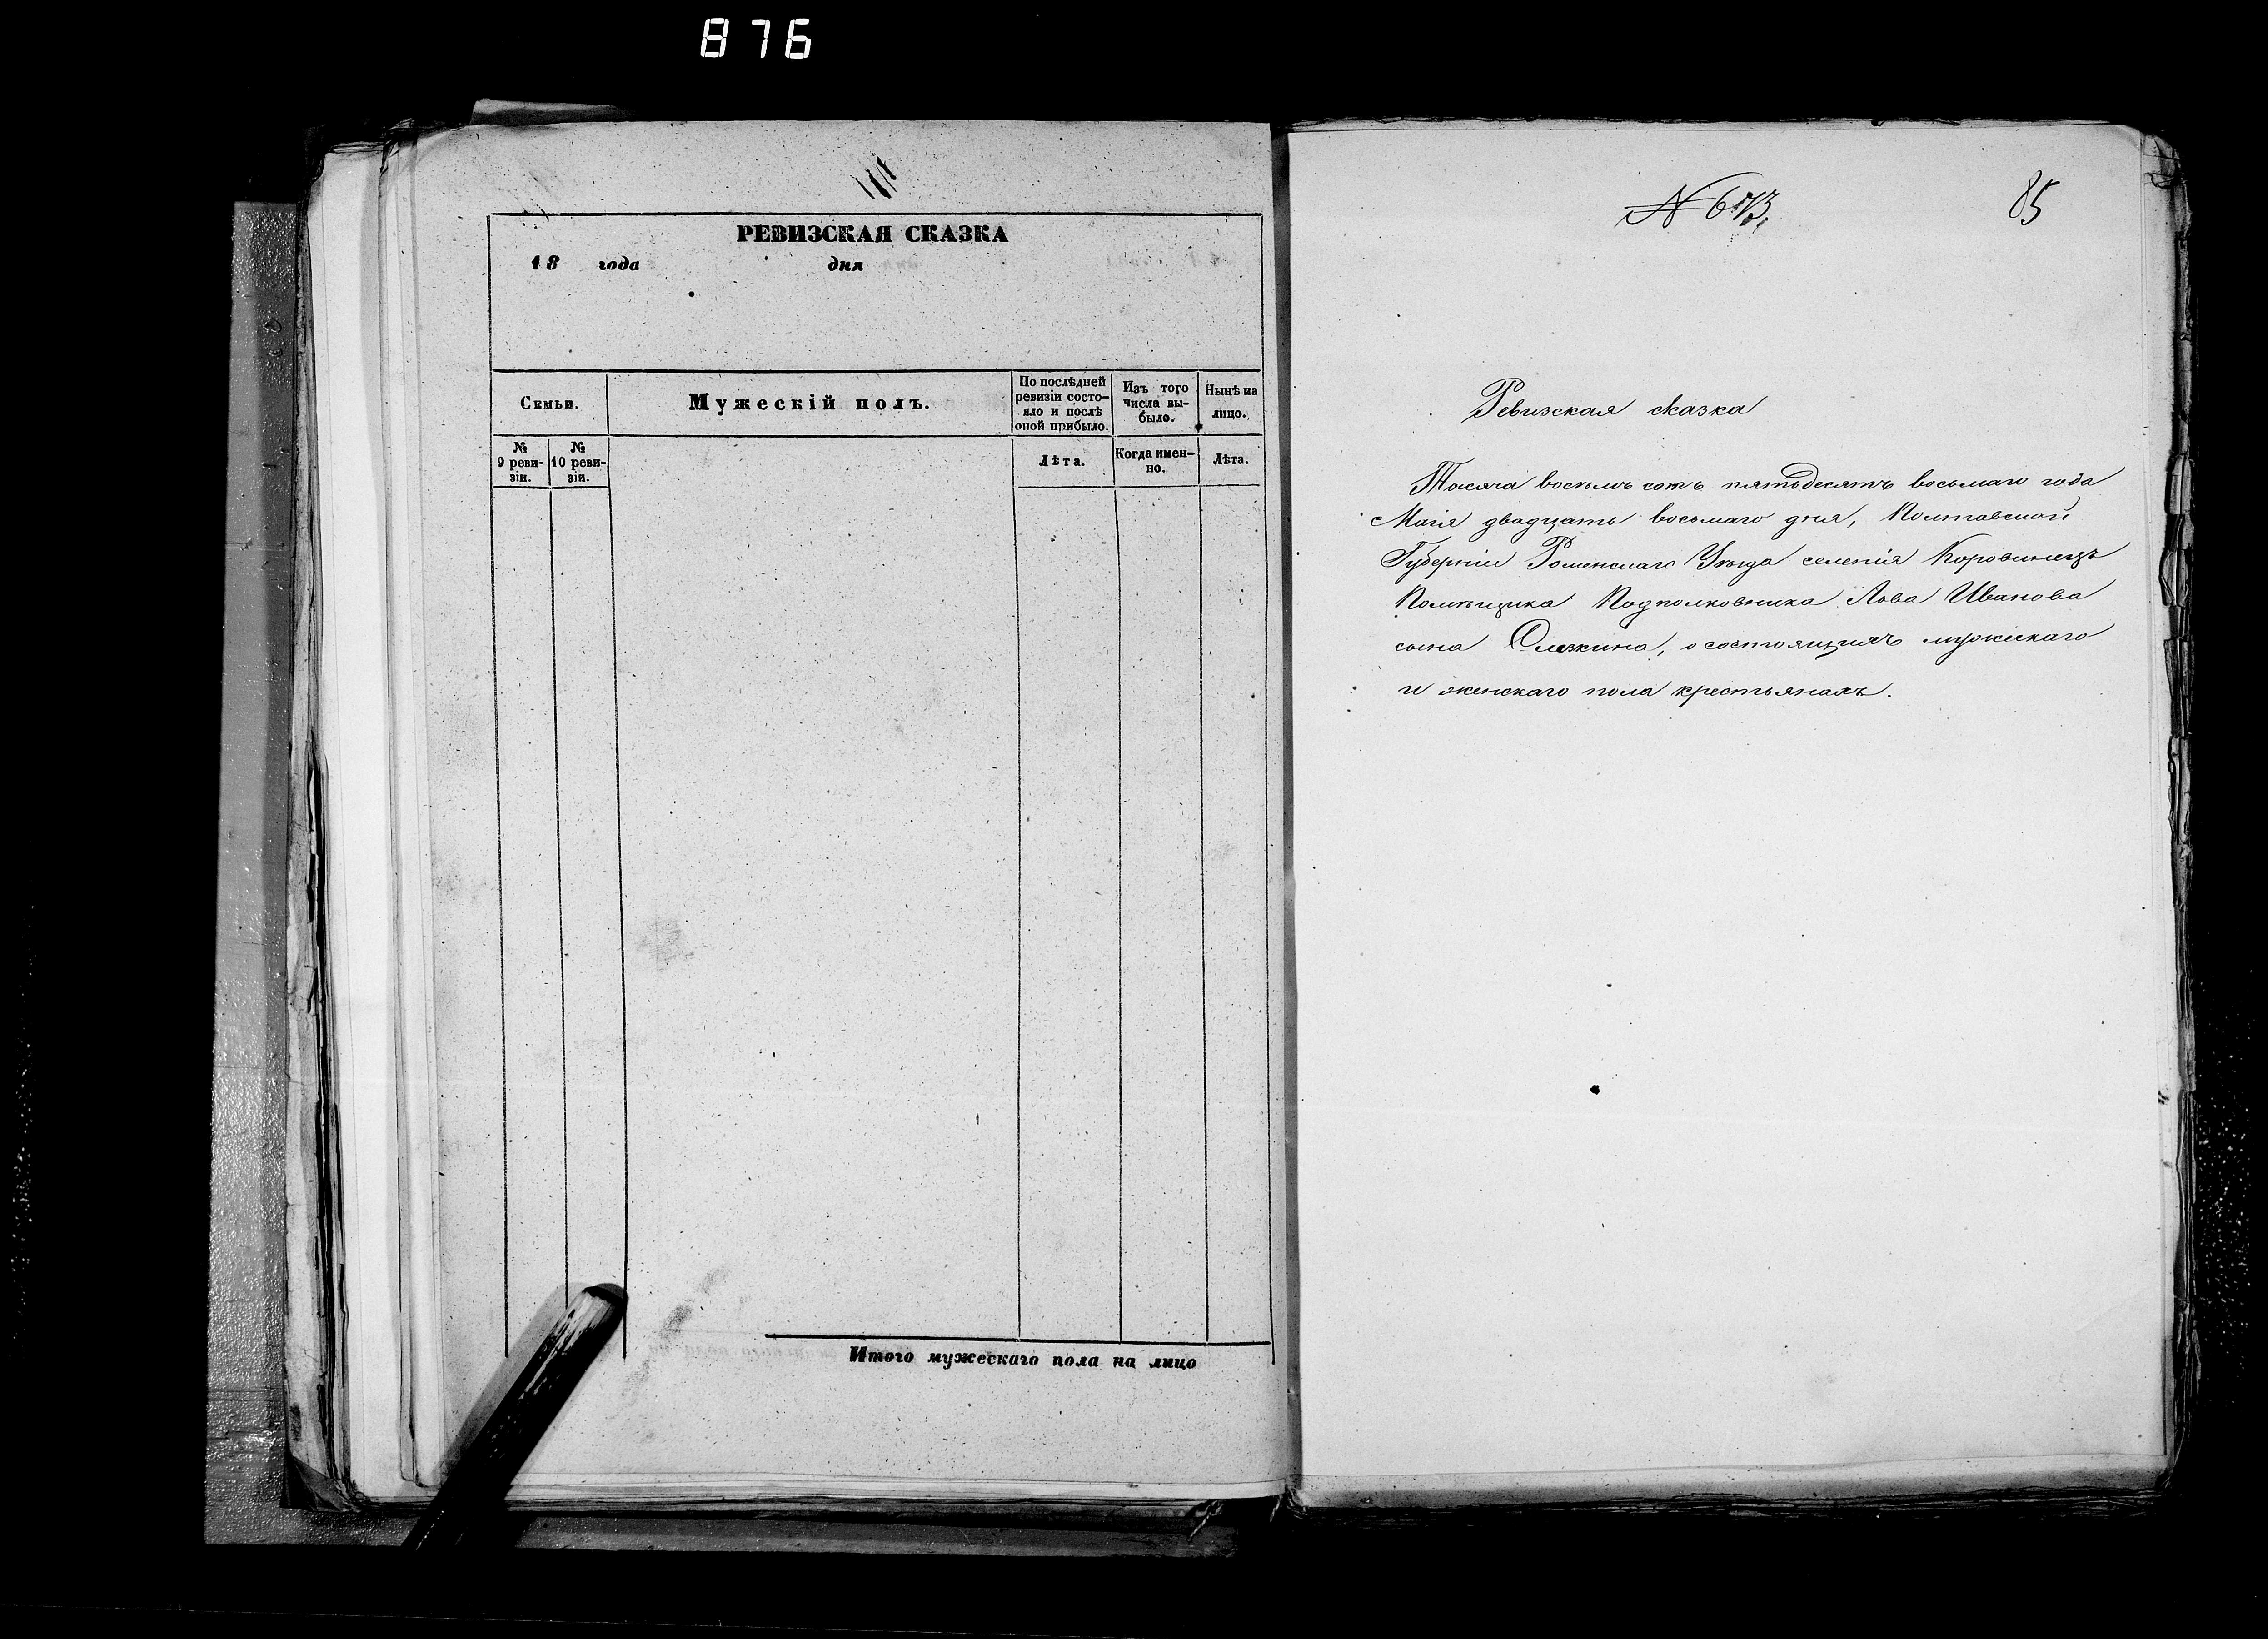 876
РЕВИЗСКАЯ СКАЗКА
18 года дня
Семьи.
Мужескій полъ.
По послѣдней ревизіи состо-
яло и послѣ
оной прибыло.
Изъ того
числа вы-
было.
Нынѣ на
лицо.
№
9 реви-
зіи.
№
10 реви-
зіи.
Лѣта.
Когда имен-
но.
Лѣта.
Итого мужескаго пола на лицо
85
Ревизская сказка
Тысяча восемь сотъ пятьдесятъ восьмаго года
Маія двадцать восьмаго дня, Полтавской
Губерніи Роменскаго Уѣзда селенія Коровинецъ
Помѣщика Подполковника Льва Иванова
сына о состоящихъ мужескаго
и женскаго пола крестьянахъ.